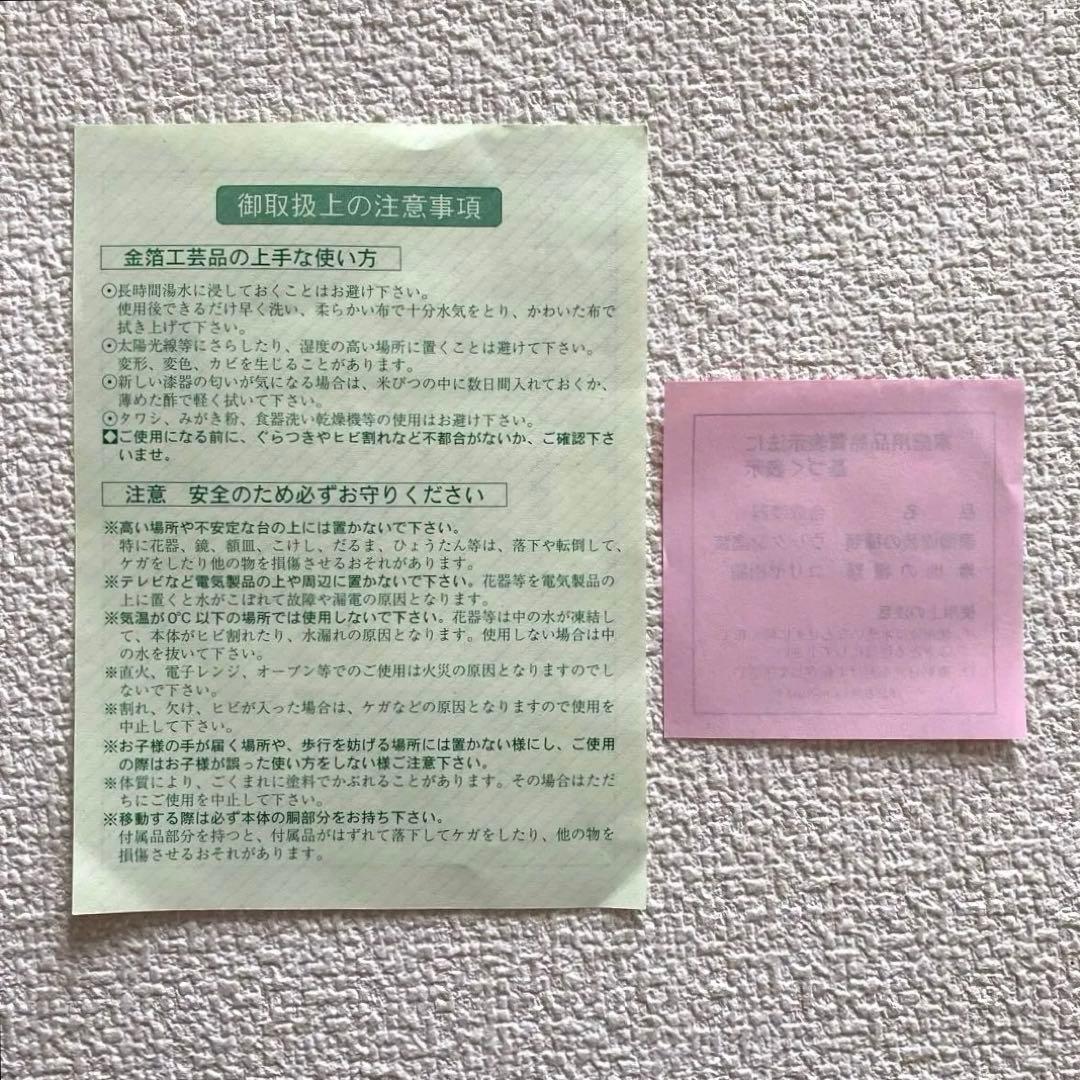 御取扱上の注意事項
金箔工芸品の上手な使い方
⦿長時間湯水に浸しておくことはお避け下さい。
使用後できるだけ早く洗い、柔らかい布で十分水気をとり、かわいた布で
拭き上げて下さい。
⦿太陽光線等にさらしたり、湿度の高い場所に置くことは避けて下さい。
変形、変色、カビを生じることがあります。
⦿新しい漆器の匂いが気になる場合は、米びつの中に数日間入れておくか、
薄めた酢で軽く拭いて下さい。
⦿タワシ、みがき粉、食器洗い乾燥機等の使用はお避け下さい。
◆ご使用になる前に、ぐらつきやヒビ割れなど不都合がないか、ご確認下さ
いませ。
注意　安全のため必ずお守りください
※高い場所や不安定な台の上には置かないで下さい。
特に花器、鏡、額皿、こけし、だるま、ひょうたん等は、落下や転倒して、
ケガをしたり他の物を損傷させるおそれがあります。
※テレビなど電気製品の上や周辺に置かないで下さい。花器等を電気製品の
上に置くと水がこぼれて故障や漏電の原因となります。
※気温が0℃以下の場所では使用しないで下さい。花器等は中の水が凍結し
て、本体がヒビ割れたり、水漏れの原因となります。使用しない場合は中
の水を抜いて下さい。
※直火、電子レンジ、オーブン等でのご使用は火災の原因となりますのでし
ないで下さい。
※割れ、欠け、ヒビが入った場合は、ケガなどの原因となりますので使用を
中止して下さい。
※お子様の手が届く場所や、歩行を妨げる場所には置かない様にし、ご使用
の際はお子様が誤った使い方をしない様ご注意下さい。
※体質により、ごくまれに塗料でかぶれることがあります。その場合はただ
ちにご使用を中止して下さい。
※移動する際は必ず本体の胴部分をお持ち下さい。
付属品部分を持つと、付属品がはずれて落下してケガをしたり、他の物を
損傷させるおそれがあります。
家庭用品品質表示法に
基づく表示
品名 合成漆器
表面塗装の種類 ウレタン塗装
素地の種類 ユリヤ樹脂
使用上の注意